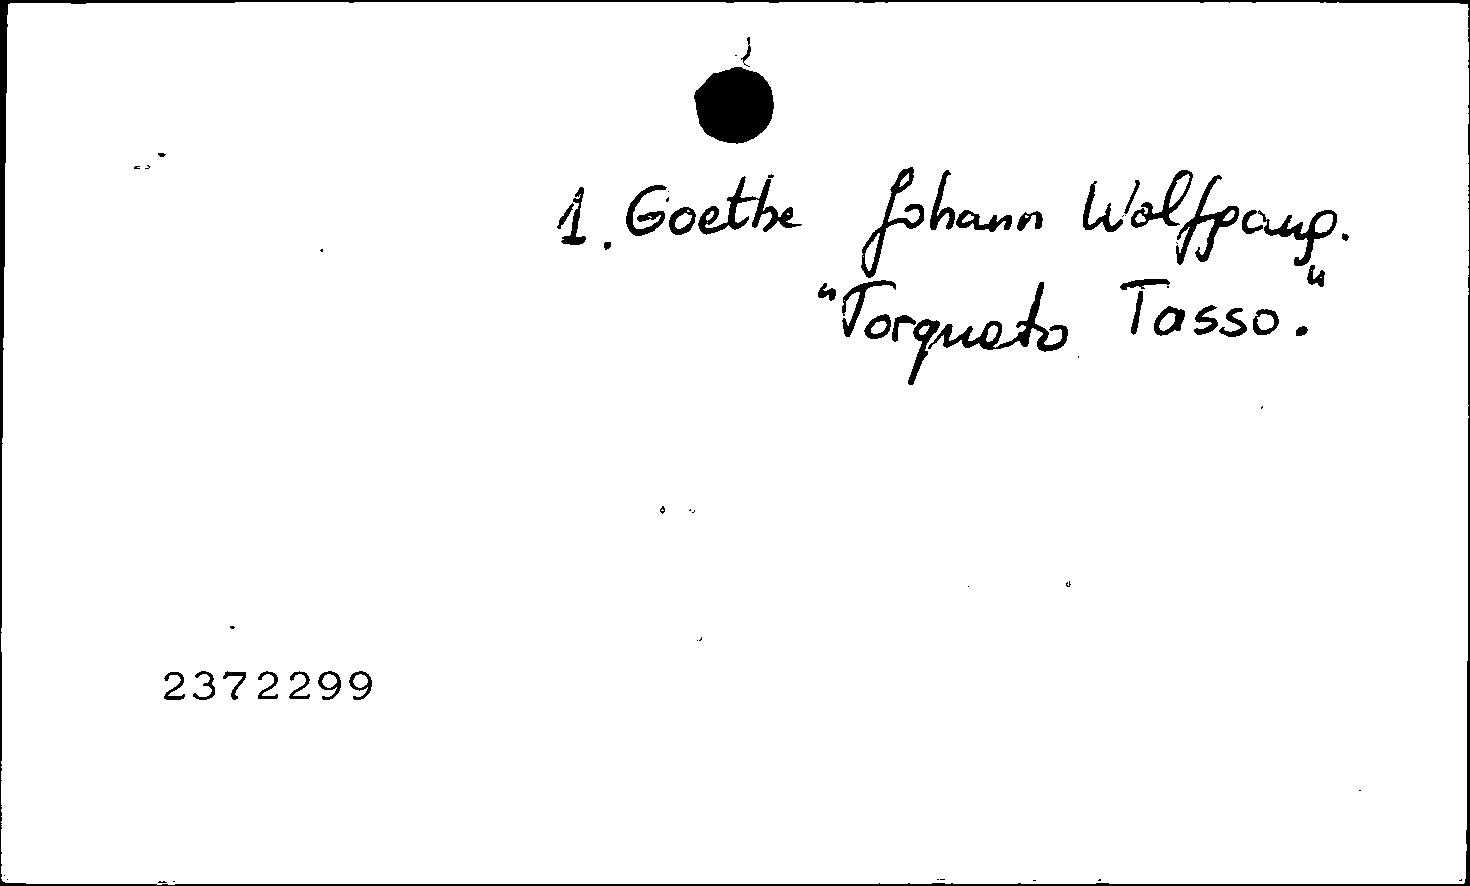 1. Goethe Johann Wolfgang.
"Torquato Tasso."
2372299